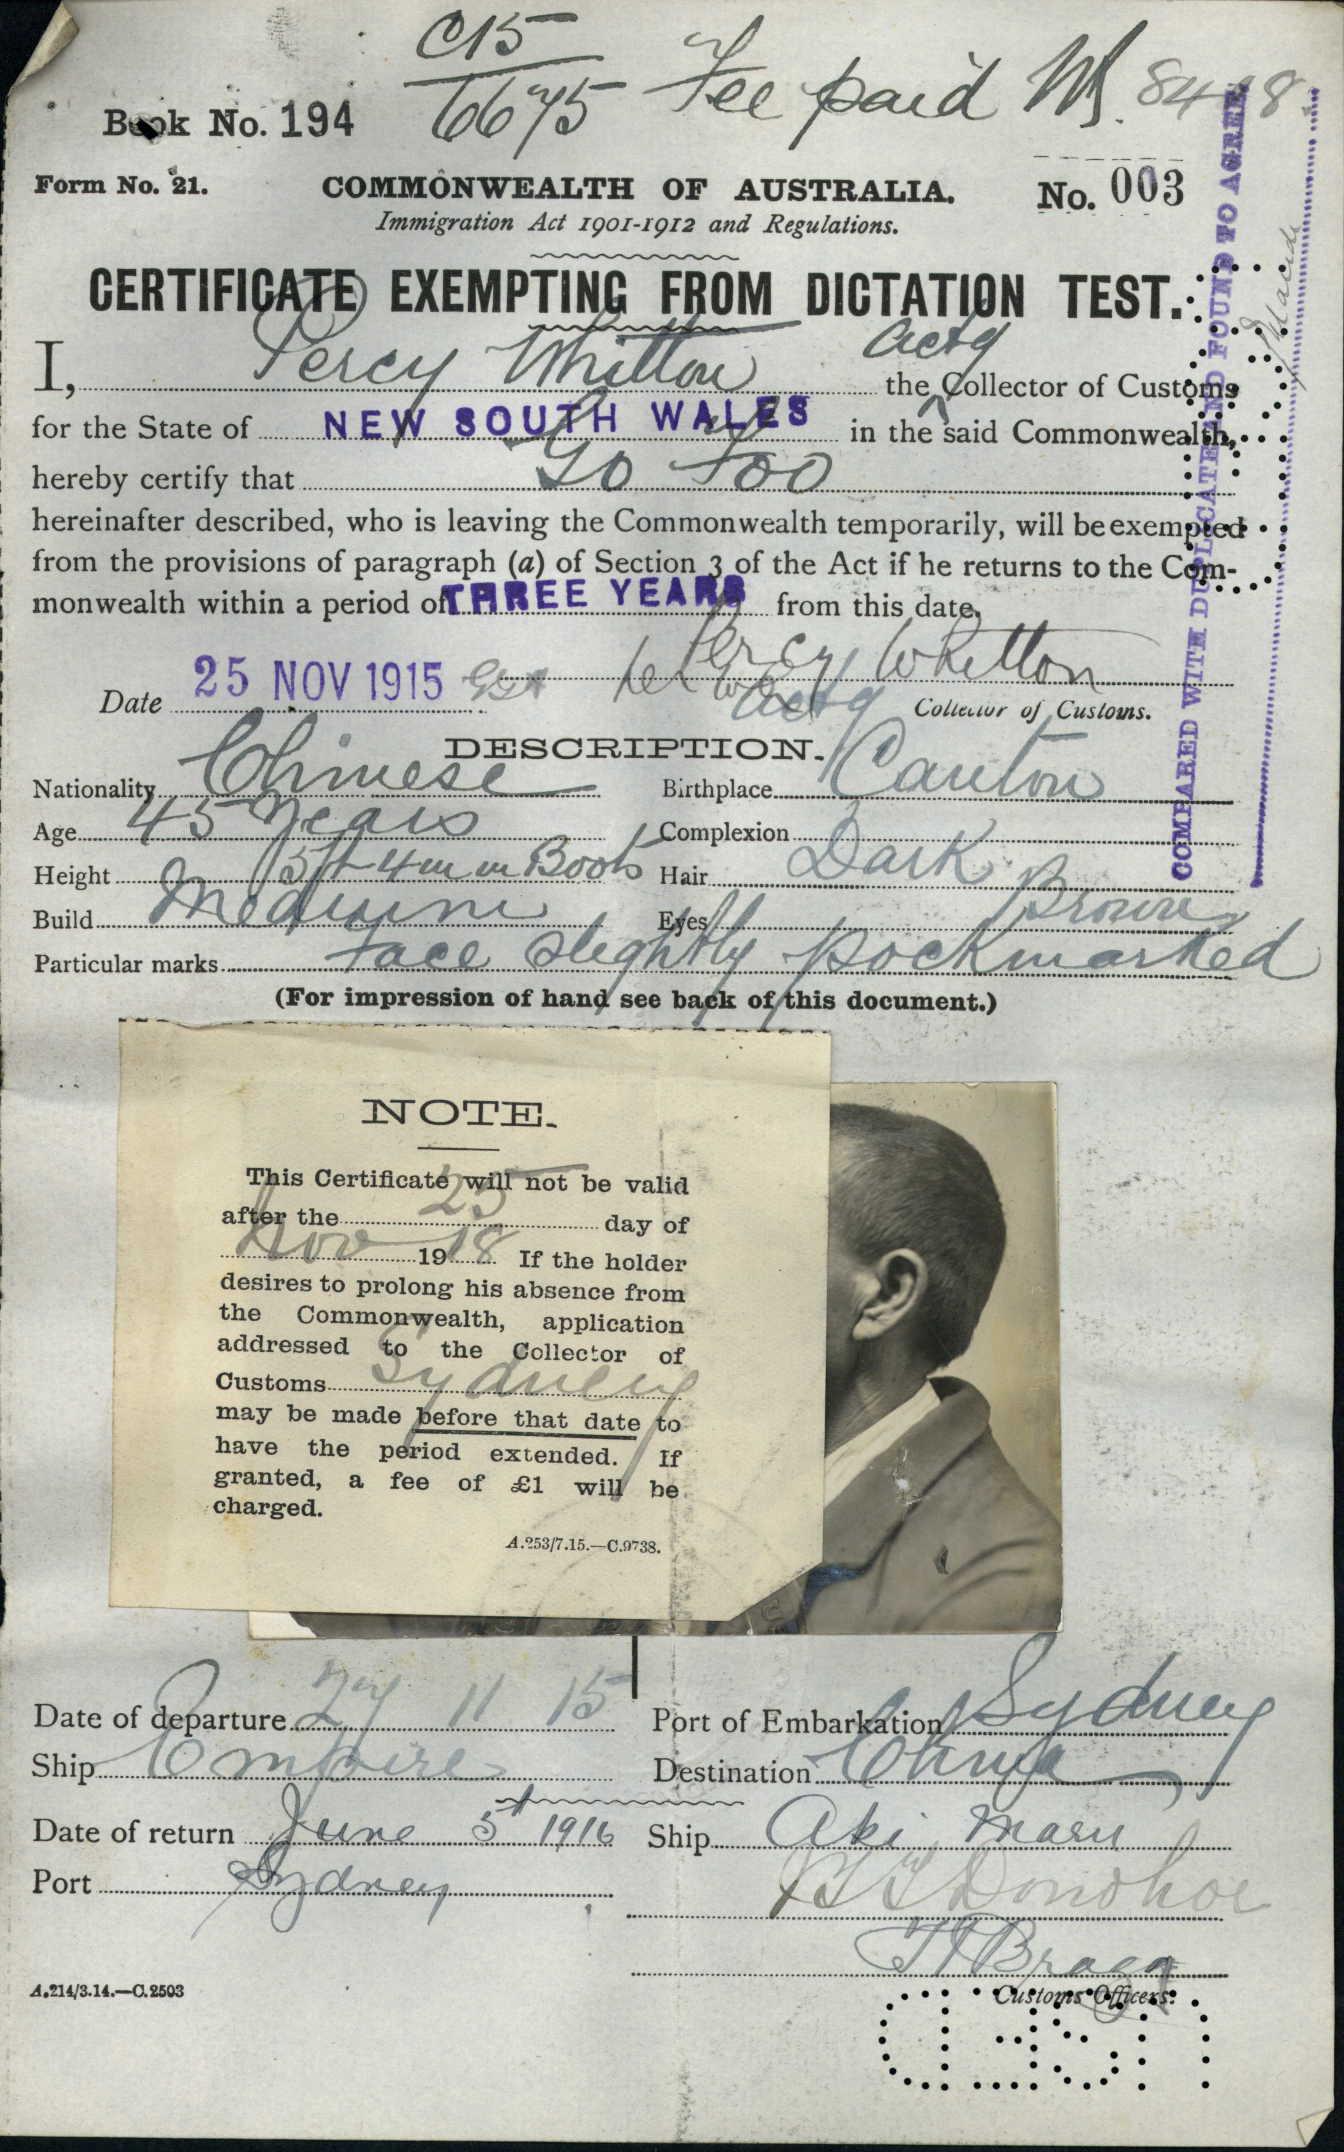 C15
6675 Fee paid
Book No. 194
Form No. 21.
COMMONWEALTH OF AUSTRALIA.
No. 003
Immigration Act 1901-1912 and Regulations.
CERTIFICATE EXEMPTING FROM DICTATION TEST.
I, Percy Whitton the actg Collector of Customs
for the State of NEW SOUTH WALES in the said Commonwealth,
hereby certify that Go Foo
hereinafter described, who is leaving the Commonwealth temporarily, will be exempted
from the provisions of paragraph (a) of Section 3 of the Act if he returns to the Com-
monwealth within a period of THREE YEARS from this date.
Percy Whitton
Date 25 NOV 1915 actg Collector of Customs.
COMPARED WITH DUPLICATE AND FOUND TO AGREE.
DESCRIPTION.
Nationality Chinese Birthplace Canton
Age 45 Years Complexion
Height 5ft 4in in Boots Hair Dark
Build Medium Eyes Brown
Particular marks Face slightly pockmarked
(For impression of hand see back of this document.)
NOTE.
This Certificate will not be valid
after the 25 day of
Nov 1918 If the holder
desires to prolong his absence from
the Commonwealth, application
addressed to the Collector of
Customs Sydney
may be made before that date to
have the period extended. If
granted, a fee of £1 will be
charged.
A.253/7.15.—C.9738.
Date of departure 27 11 15 Port of Embarkation Sydney
Ship Empire Destination China
Date of return June 5th 1916 Ship Aki Maru
Port Sydney
Donohoe
Bragg
A.214/3.14.—C.2503
Customs Officers.